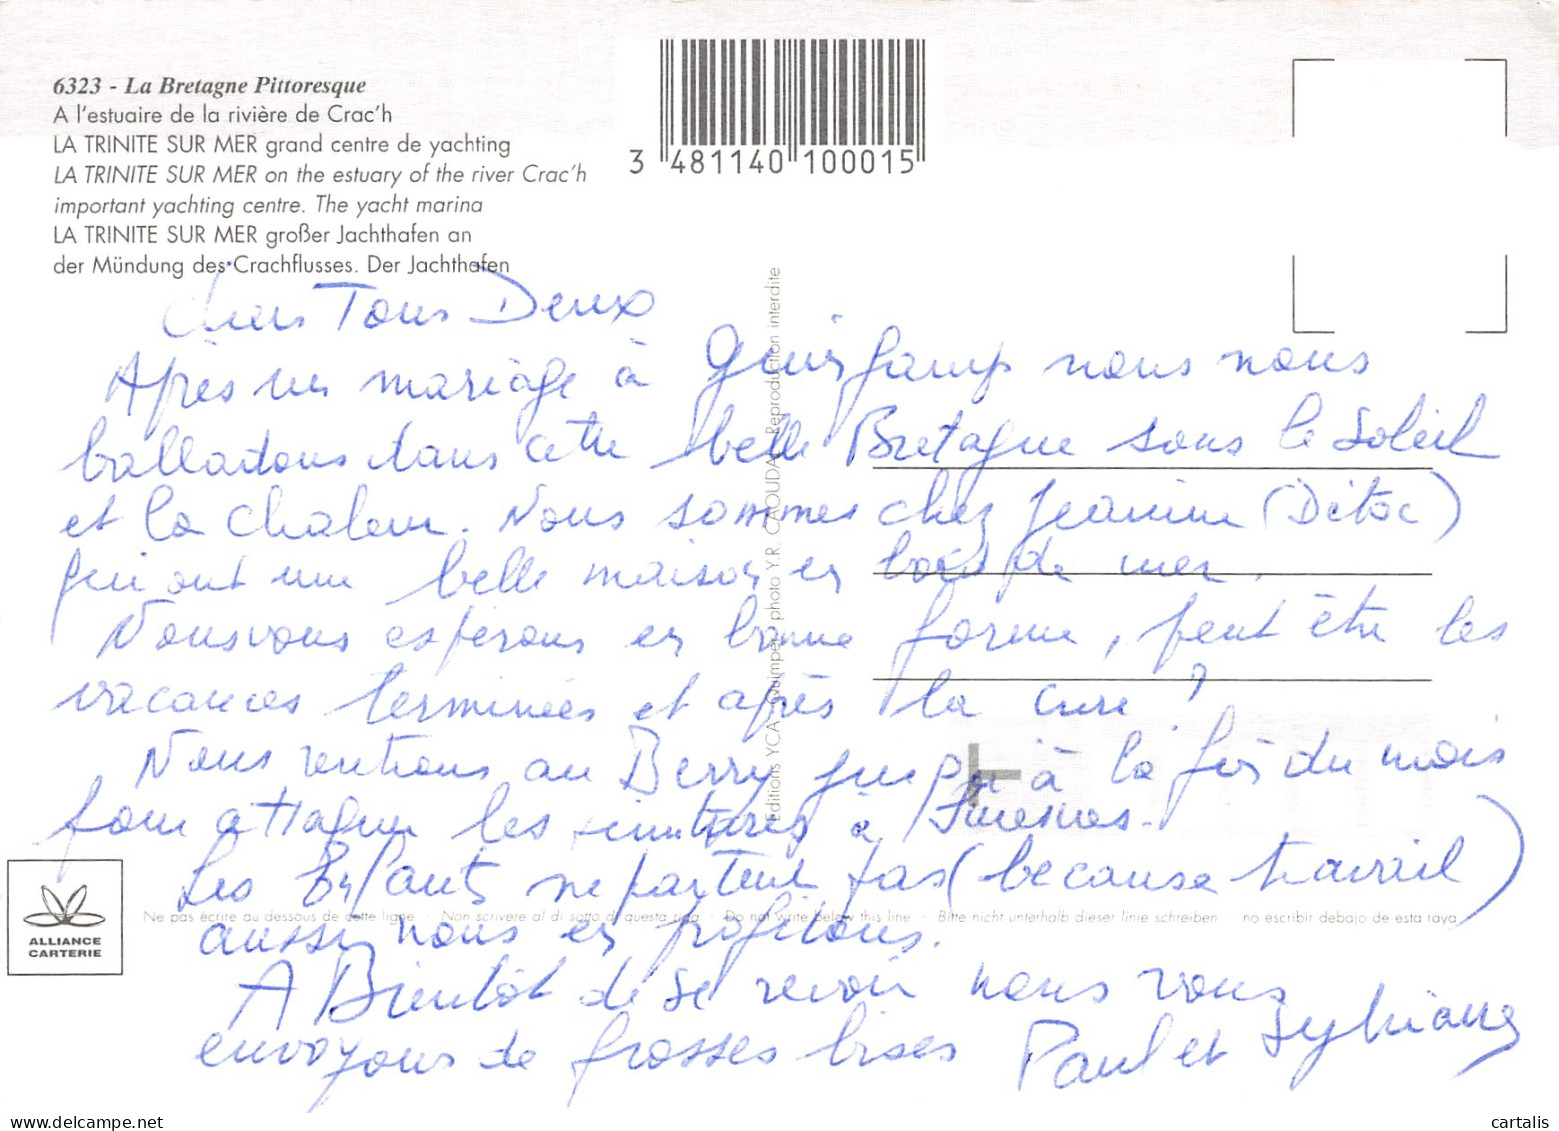 6323 - La Bretagne Pittoresque
A l'estuaire de la rivière de Crac'h
LA TRINITE SUR MER grand centre de yachting
LA TRINITE SUR MER on the estuary of the river Crac'h
important yachting centre. The yacht marina
LA TRINITE SUR MER großer Jachthafen an
der Mündung des Crachflusses. Der Jachthafen
3 481140 100015
Editions YCA Quimper photo Y.R. CAOUDAL Reproduction interdite
Chers Tous Deux
Après un mariage à Guingamp nous nous
balladons dans cette belle Bretagne sous le Soleil
et la chaleur. Nous sommes chez Jeanine (Ditoc)
qui ont une belle maison en bord de mer.
Nous vous espérons en bonne forme, peut être les
vacances terminées et après la cure ?
Nous rentrons au Berry jusqu'à la fin du mois
pour attaquer les peintures à Suresnes.
Les Enfants ne partent pas (because travail)
aussi nous en profitons.
A Bientôt de se revoir nous vous
envoyons de grosses bises Paul et Sylviane
ALLIANCE
CARTERIE
Ne pas écrire au dessous de cette ligne · Non scrivere al di sotto di questa riga · Do not write below this line · Bitte nicht unterhalb dieser linie schreiben · no escribir debajo de esta raya
cartalis